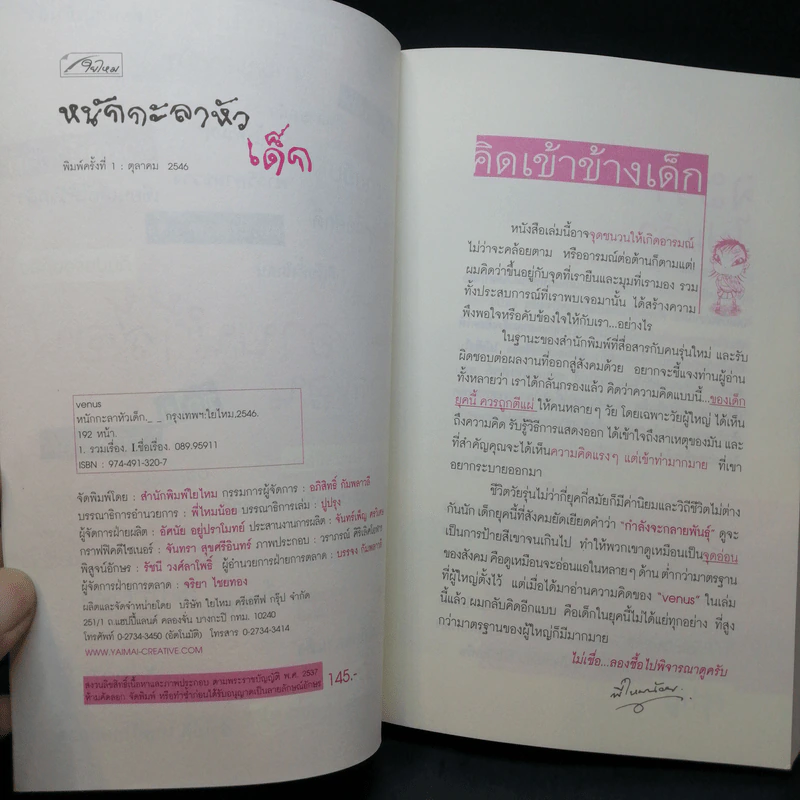 ใยไหม
หนักกะลาหัว
เด็ก
พิมพ์ครั้งที่ 1 : ตุลาคม 2546
venus
หนักกะลาหัวเด็ก,_ _ กรุงเทพฯ:ใยไหม,2546.
192 หน้า.
1. รวมเรื่อง. I.ชื่อเรื่อง. 089.95911
ISBN : 974-491-320-7
จัดพิมพ์โดย : สำนักพิมพ์ใยไหม กรรมการผู้จัดการ : อภิสิทธิ์ กัมพลาวลี
บรรณาธิการอำนวยการ : พี่ใหมน้อย บรรณาธิการเล่ม : ปูปรุง
ผู้จัดการฝ่ายผลิต : อัศนัย อยู่ปราโมทย์ ประสานงานการผลิต : จันทร์เพ็ญ
กราฟฟิคดีไซเนอร์ : จันทรา สุขศรีอินทร์ ภาพประกอบ : วราภรณ์
พิสูจน์อักษร : รัชนี วงศ์ลาโพธิ์ ผู้อำนวยการฝ่ายการตลาด : บรรจง กัมพลาวลี
ผู้จัดการฝ่ายการตลาด : จริยา ไชยทอง
ผลิตและจัดจำหน่ายโดย บริษัท ใยไหม ครีเอทีฟ กรุ๊ป จำกัด
251/1 ถ.แฮปปี้แลนด์ คลองจั่น บางกะปิ กทม. 10240
โทรศัพท์ 0-2734-3450 (อัตโนมัติ) โทรสาร 0-2734-3414
WWW.YAIMAI-CREATIVE.COM
สงวนลิขสิทธิ์เนื้อหาและภาพประกอบ ตามพระราชบัญญัติ พ.ศ. 2537
ห้ามคัดลอก จัดพิมพ์ หรือทำซ้ำก่อนได้รับอนุญาตเป็นลายลักษณ์อักษร
145.-
คิดเข้าข้างเด็ก
หนังสือเล่มนี้อาจจุดชนวนให้เกิดอารมณ์
ไม่ว่าจะคล้อยตาม หรืออารมณ์ต่อต้านก็ตามแต่!
ผมคิดว่าขึ้นอยู่กับจุดที่เรายืนและมุมที่เรามอง รวม
ทั้งประสบการณ์ที่เราพบเจอมานั้น ได้สร้างความ
พึงพอใจหรือคับข้องใจให้กับเรา...อย่างไร
ในฐานะของสำนักพิมพ์ที่สื่อสารกับคนรุ่นใหม่ และรับ
ผิดชอบต่อผลงานที่ออกสู่สังคมด้วย อยากจะชี้แจงท่านผู้อ่าน
ทั้งหลายว่า เราได้กลั่นกรองแล้ว คิดว่าความคิดแบบนี้...ของเด็ก
ยุคนี้ ควรถูกตีแผ่ ให้คนหลายๆ วัย โดยเฉพาะวัยผู้ใหญ่ ได้เห็น
ถึงความคิด รับรู้วิธีการแสดงออก ได้เข้าใจถึงสาเหตุของมัน และ
ที่สำคัญคุณจะได้เห็นความคิดแรงๆ แต่เข้าท่ามากมาย ที่เขา
อยากระบายออกมา
ชีวิตวัยรุ่นไม่ว่ากี่ยุคกี่สมัยก็มีค่านิยมและวิถีชีวิตไม่ต่าง
กันนัก เด็กยุคนี้ที่สังคมยัดเยียดคำว่า "กำลังจะกลายพันธุ์" ดูจะ
เป็นการป้ายสีเขาจนเกินไป ทำให้พวกเขาดูเหมือนเป็นจุดอ่อน
ของสังคม คือดูเหมือนจะอ่อนแอในหลายๆ ด้าน ต่ำกว่ามาตรฐาน
ที่ผู้ใหญ่ตั้งไว้ แต่เมื่อได้มาอ่านความคิดของ "venus" ในเล่ม
นี้แล้ว ผมกลับคิดอีกแบบ คือเด็กในยุคนี้ไม่ได้แย่ทุกอย่าง ที่สูง
กว่ามาตรฐานของผู้ใหญ่ก็มีมากมาย
ไม่เชื่อ...ลองซื้อไปพิจารณาดูครับ
พี่ใหมน้อย